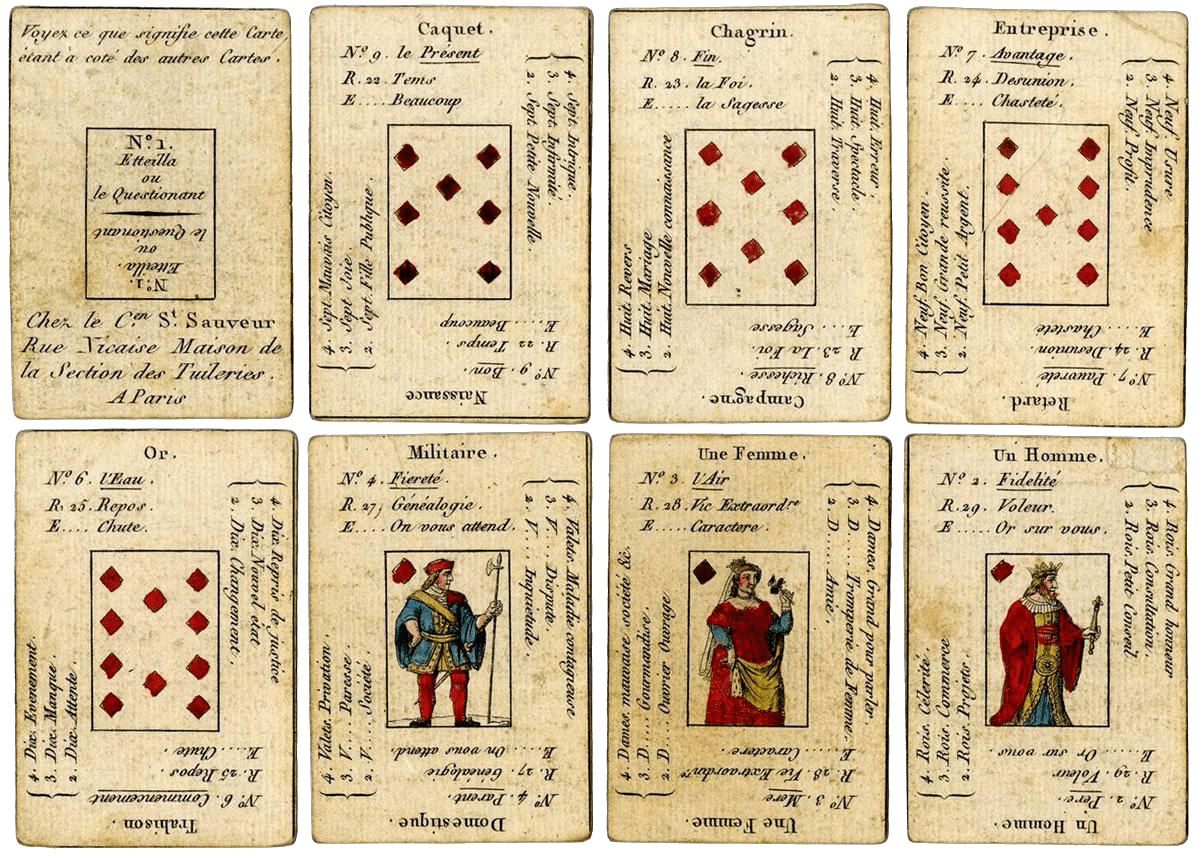 Voyez ce que signifie cette Carte,
étant à coté des autres Cartes.
N.º 1.
Etteilla
ou
le Questionant
le Questionant
ou
Etteilla.
N.º 1.
Chez le C.en S.t Sauveur
Rue Nicaise Maison de
la Section des Tuileries.
A Paris
Caquet.
N.º 9. le Présent
R. 22. Tems
E.... Beaucoup
4. Sept. Intrigue.
3. Sept. Infirmité.
2. Sept. Petite Nouvelle.
4. Sept. Mauvais Citoyen.
3. Sept. Joie.
2. Sept. Fille Publique.
Naissance
N.º 9. Bon.
R. 22 Temps.
E.... Beaucoup
Chagrin.
N.º 8. Fin.
R. 23. la Foi.
E..... la Sagesse
4. Huit. Erreur.
3. Huit. Spectacle.
2. Huit. Traverse.
4. Huit. Revers
3. Huit. Mariage
2. Huit. Nouvelle connaissance
Campagne.
N.º 8. Richesse.
R 23. La Foi.
E.... Sagesse
Entreprise.
N.º 7. Avantage
R. 24. Desunion.
E.... Chasteté.
4. Neuf. Usure
3. Neuf. Imprudence
2. Neuf. Profit.
4. Neuf. Bon Citoyen.
3. Neuf. Grande reussite.
2. Neuf. Petit Argent.
Retard.
N.º 7. Pauvreté
R. 24. Desunion.
E.... Chasteté
Or.
N.º 6. l'Eau.
R. 25. Repos.
E.... Chute.
4. Dix. Repris de justice
3. Dix. Nouvel état
2. Dix. Changement.
4. Dix. Evenement.
3. Dix. Manque.
2. Dix. Attente.
Trahison.
N.º 6. Commencement
R. 25 Repos.
E.... Chute.
Militaire.
N.º 4. Fiereté.
R. 27; Généalogie.
E.... On vous attend.
4. Valets. Maladie contagieuse
3. V.... Dispute.
2. V.... Inquiétude.
4. Valets. Privation.
3. V.... Paresse.
2. V.... Société
Domestique.
N.º 4. Parent.
R. 27. Généalogie
E.... On vous attend.
Une Femme.
N.º 3. l'Air
R. 28. Vie Extraord.re
E..... Caractere.
4. Dames. Grand pour parler
3. D.... Tromperie de Femme.
2. D.... Amie.
4. Dames. mauvaise société &c.
3. D.... Gourmandise.
2. D.... Ouvrier Ouvrage
Une Femme.
N.º 3. Mere
R. 28. Vie Extraordin.re
E.... Caractere.
Un Homme.
N.º 2. Fidelité
R. 29. Voleur.
E..... Or sur vous.
4. Rois. Grand honneur
3. Rois. Consultation.
2. Rois. Petit Conseil
4. Rois. Célerité.
3. Rois. Commerce
2. Rois. Projets.
Un Homme.
N.º 2. Pere.
R. 29. Voleur
E..... Or sur vous